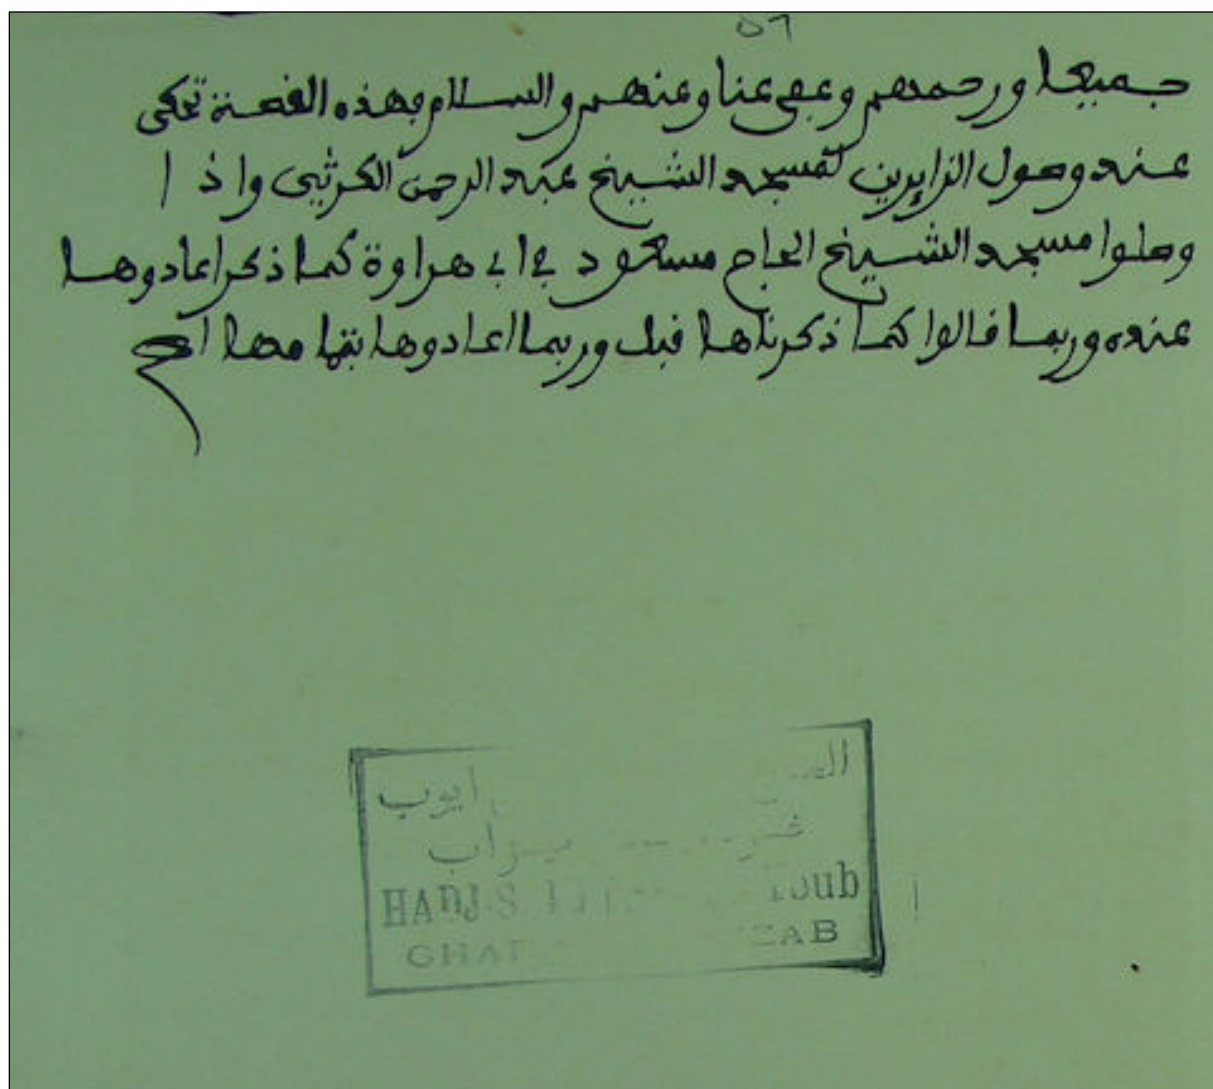 ٥٦
جميعا ورحمهم وعفى عنا وعنهم والسلام فهذه القصة تحكى
عند وصول الزايرين لمسجد الشيخ عبد الرحمن الكرثي واذا
وصلوا مسجد الشيخ الحاج مسعود في ابي هراوة كما ذكر اعادوها
عنده وربما قالوا كما ذكرناها قبل وربما اعادوها بتمامها اهـ
ايوب
HADJ
oub
ZAB